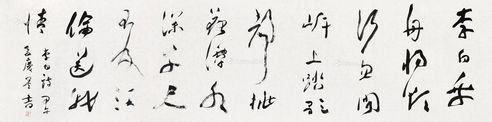 李白乘
舟将欲
行忽闻
岸上踏歌
声桃
花潭水
深千尺
不及汪
伦送我
情
李白诗